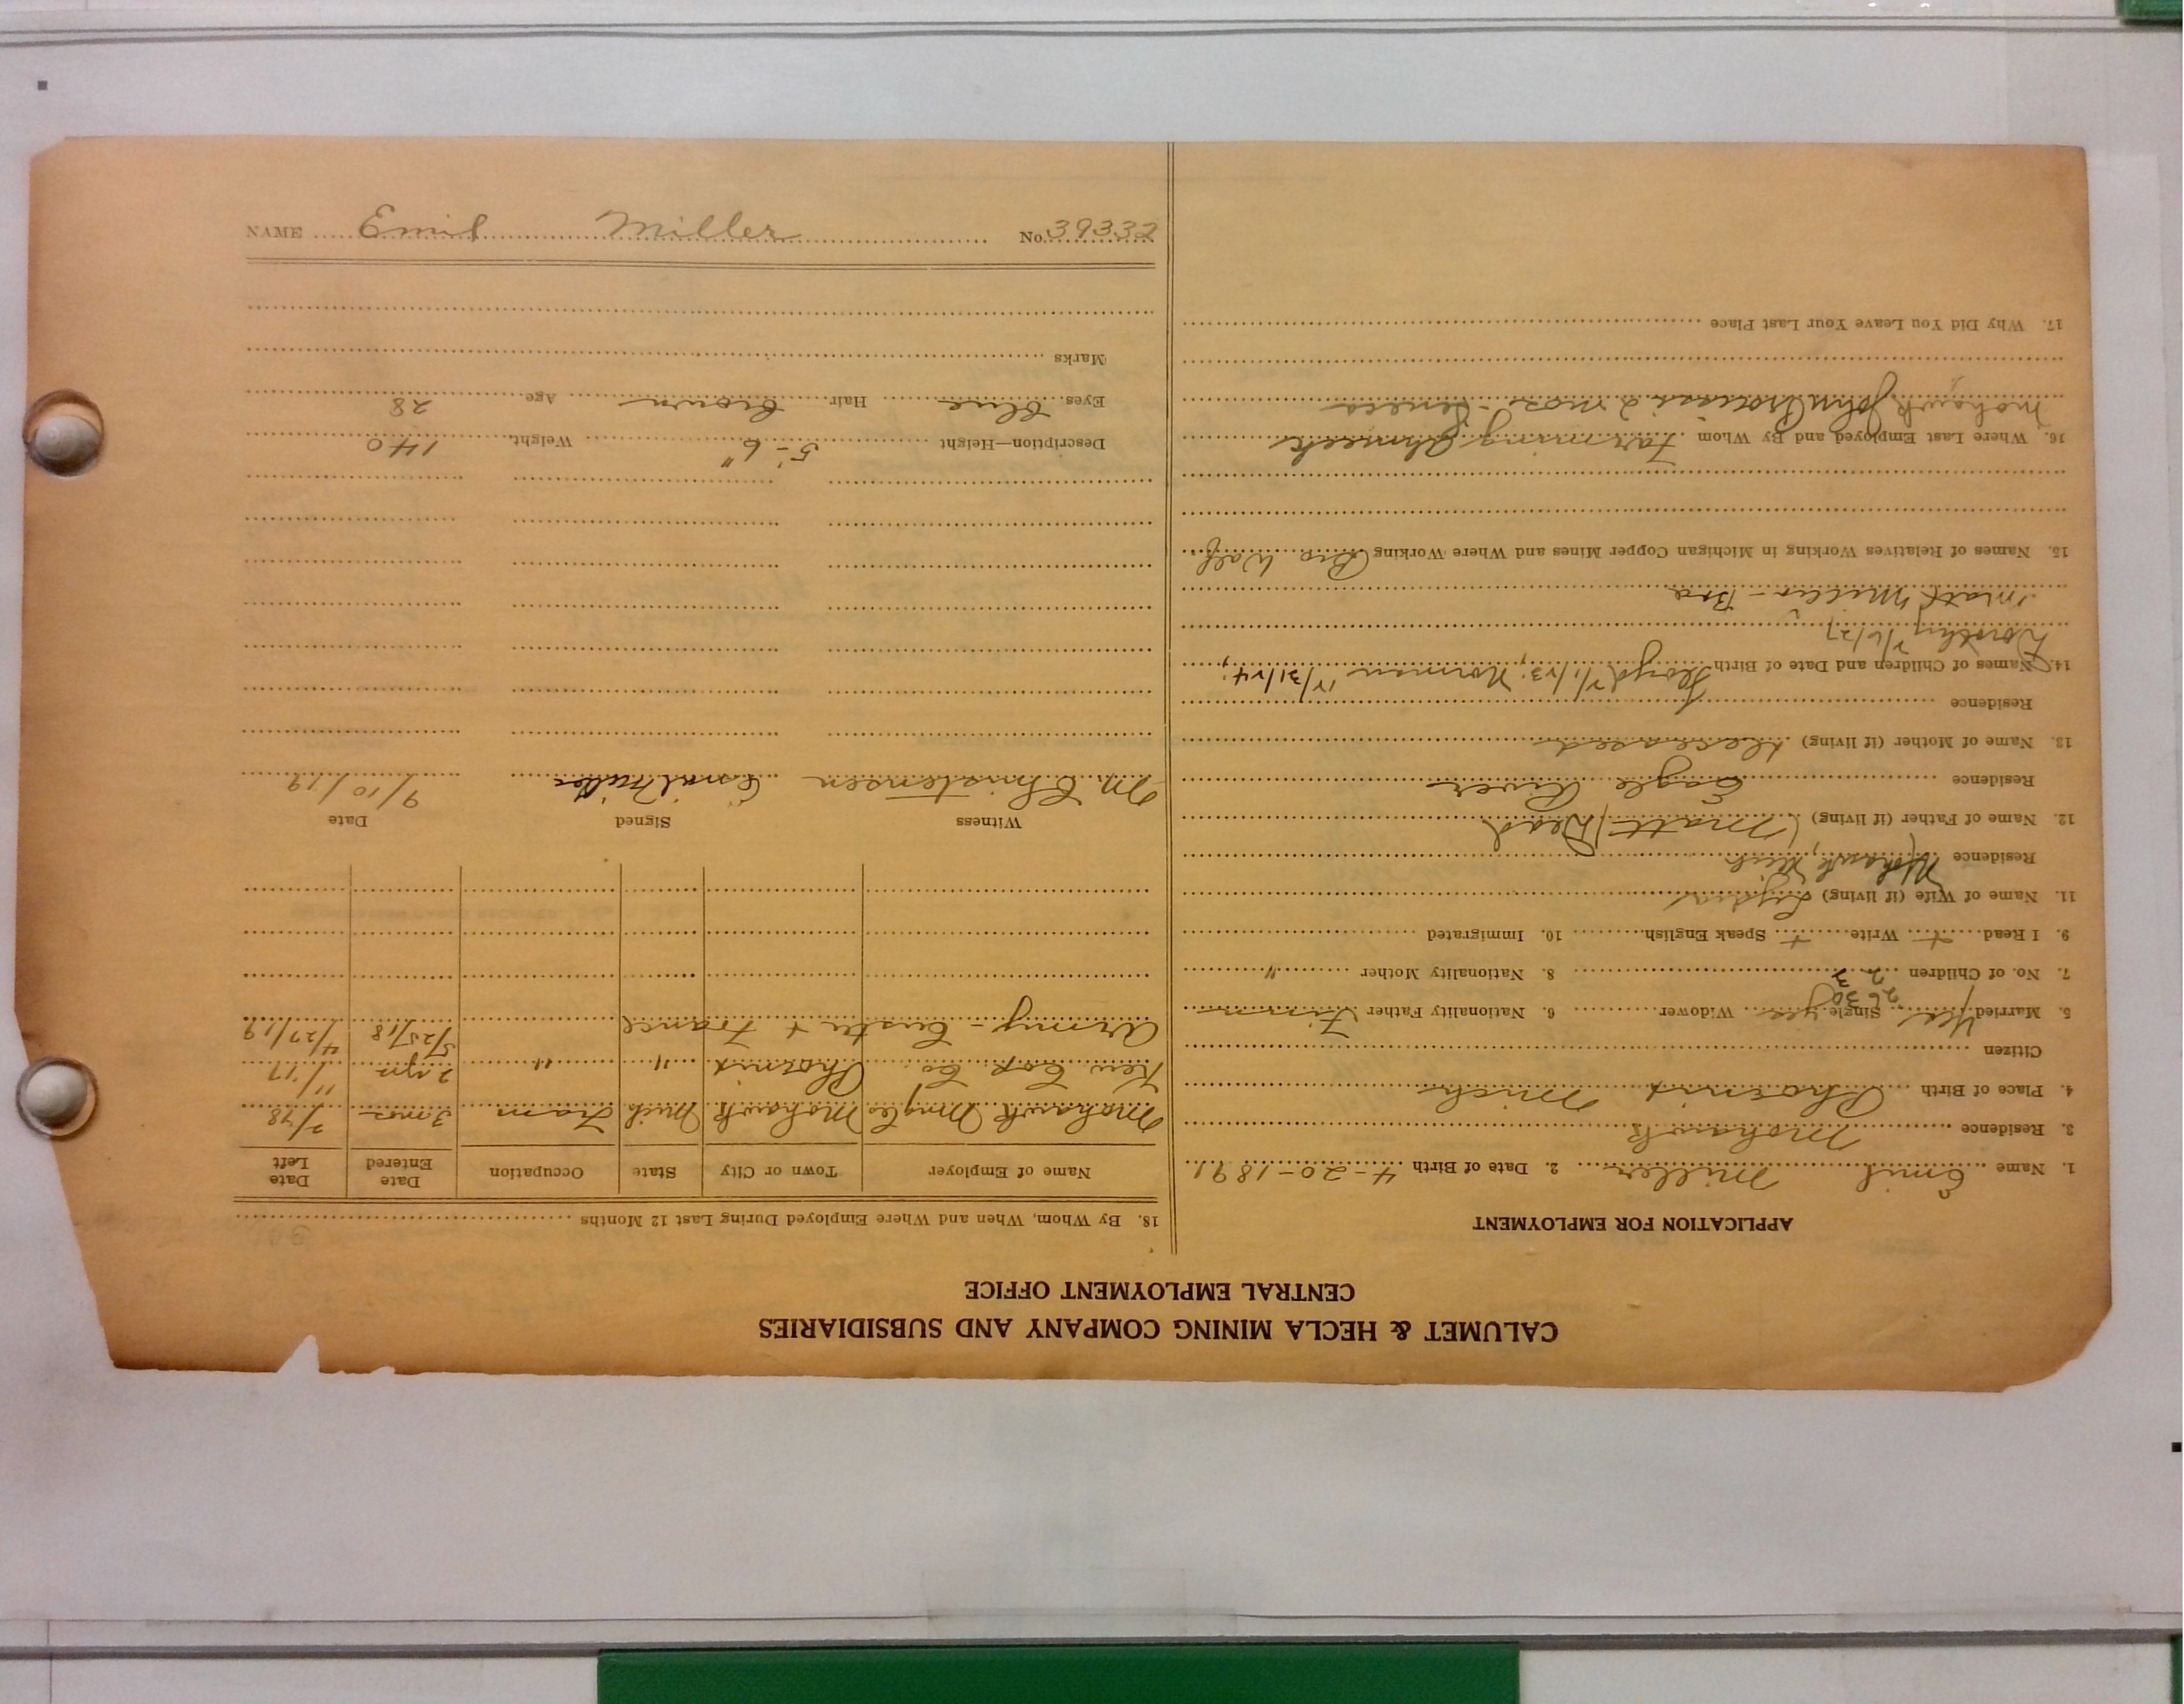 CALUMET & HECLA MINING COMPANY AND SUBSIDIARIES
CENTRAL EMPLOYMENT OFFICE
APPLICATION FOR EMPLOYMENT
1. Name Emil Miller 2. Date of Birth 4-20-1891
3. Residence Mohawk
4. Place of Birth Phoenix Mich
Citizen
5. Married Yes Single yes Widower 6. Nationality Father Finn
26 30
7. No. of Children 2 3 8. Nationality Mother "
9. I Read + Write + Speak English 10. Immigrated
11. Name of Wife (if living) Lydia
Residence Mohawk, Mich
12. Name of Father (if living) (Matt) Dead
Residence Eagle River
13. Name of Mother (if living) deceased
Residence
14. Names of Children and Date of Birth Floyd 7/1/23; Norman 12/31/24;
Dorothy 7/6/27
Matt Miller - Bro
15. Names of Relatives Working in Michigan Copper Mines and Where Working Bro Walf
16. Where Last Employed and By Whom Farming Ahmeek
Mohawk John 2 mos - Seneca
17. Why Did You Leave Your Last Place
18. By Whom, When and Where Employed During Last 12 Months
Name of Employer Town or City State Occupation Date Entered Date Left
Mohawk Mng Co Mohawk Mich Tram 3 mos 2/18
Kew. Cop. Co. Phoenix " " 2 yrs 11/17
Army - Custer + France 5/25/18 4/27/19
Witness Signed Date
M. Christensen Emil Miller 9/10/19
Description—Height 5'-6" Weight 140
Eyes blue Hair brown Age 28
Marks
NAME Emil Miller No. 39332